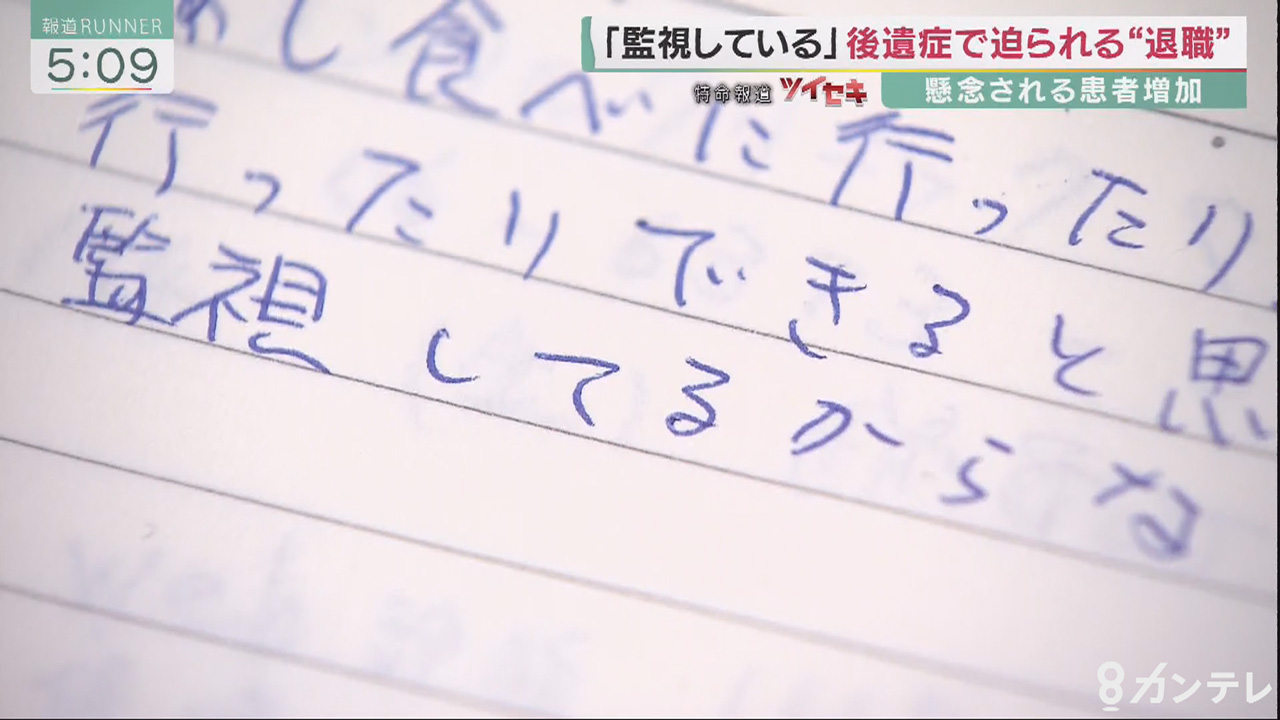 報道RUNNER
5:09
「監視している」後遺症で迫られる“退職”
特命報道 ツイセキ
懸念される患者増加
し食べに行ったり
行ったりできると思
監視してるからな
カンテレ